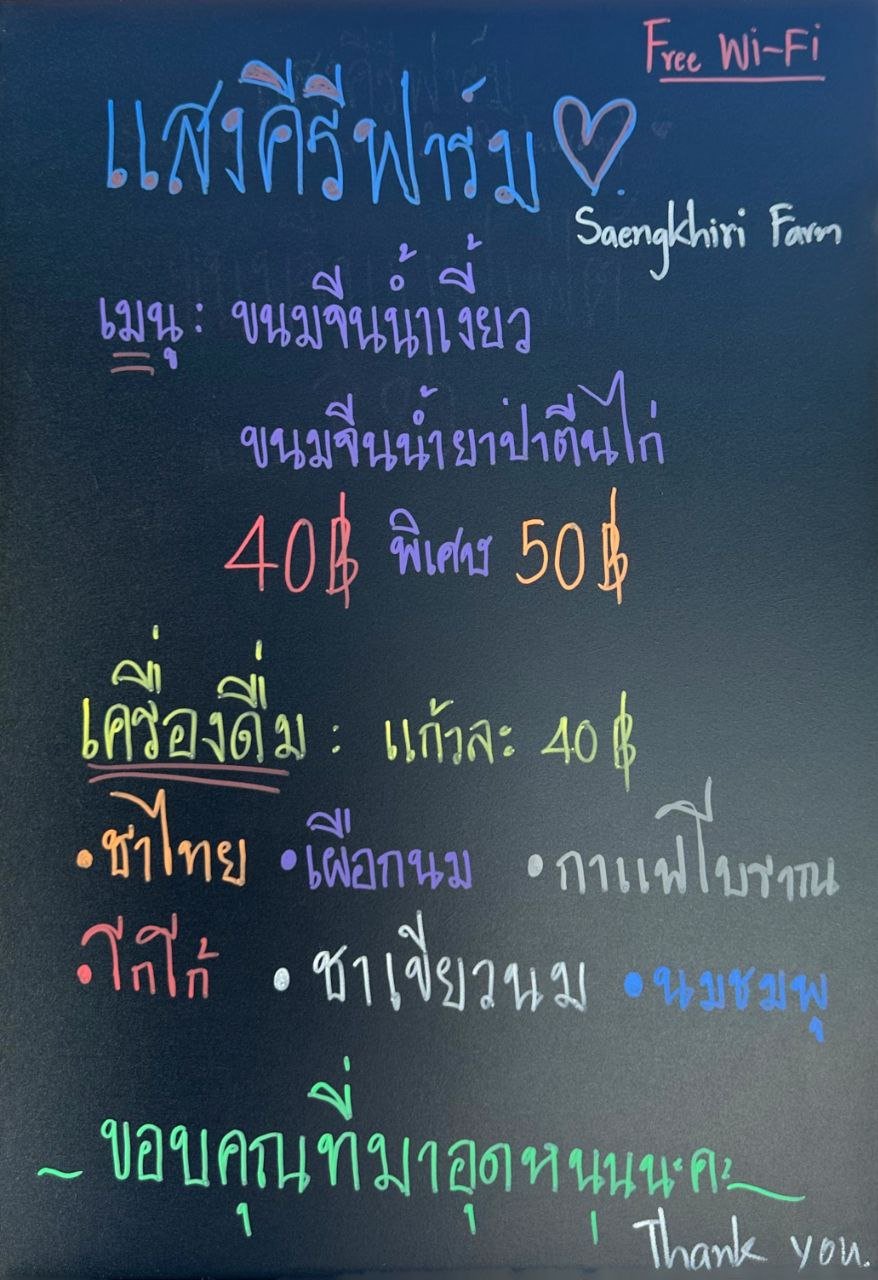 Free Wi-Fi
แสงคีรีฟาร์ม
Saengkhiri Farm
เมนู : ขนมจีนน้ำเงี้ยว
ขนมจีนน้ำยาป่าตีนไก่
40฿ พิเศษ 50฿
เครื่องดื่ม : แก้วละ 40฿
•ชาไทย •เผือกนม •กาแฟโบราณ
•โกโก้ •ชาเขียวนม •นมชมพู
~ ขอบคุณที่มาอุดหนุนนะคะ ~
Thank you.